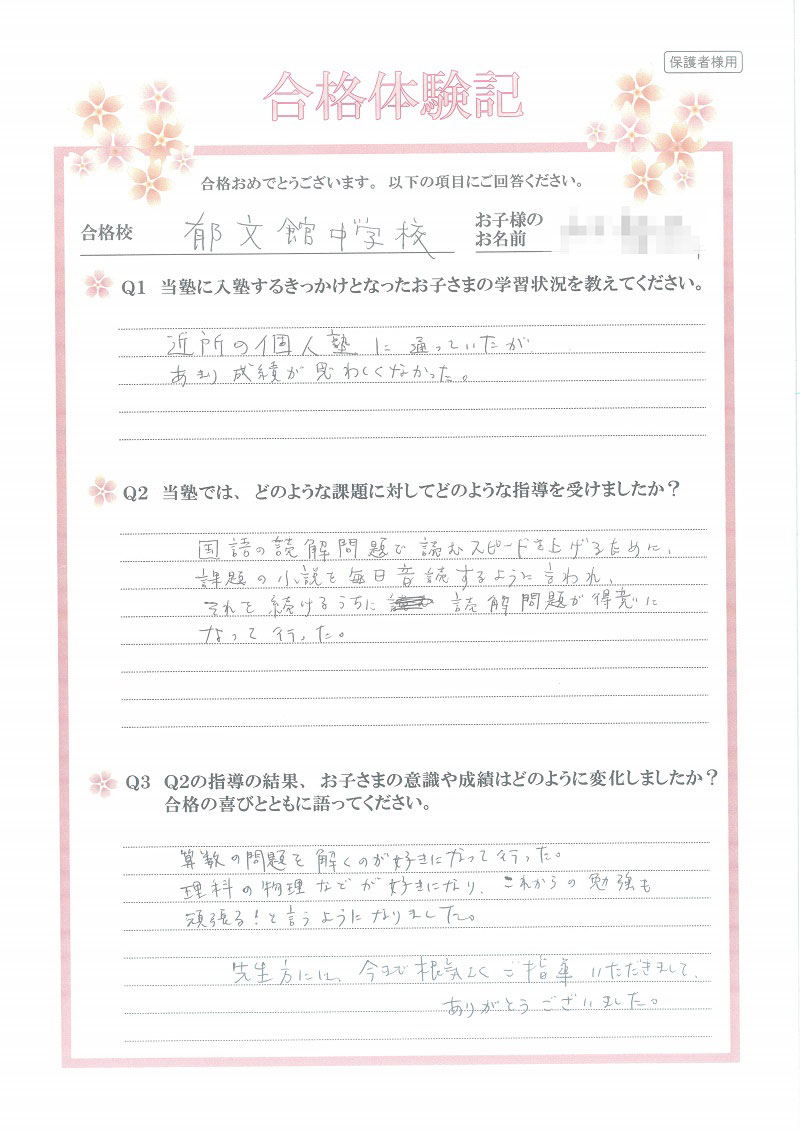 保護者様用
合格体験記
合格おめでとうございます。以下の項目にご回答ください。
合格校 郁文館中学校 お子様の
お名前
Q1 当塾に入塾するきっかけとなったお子さまの学習状況を教えてください。
近所の個人塾に通っていたが
あまり成績が思わしくなかった。
Q2 当塾では、どのような課題に対してどのような指導を受けましたか？
国語の読解問題で読むスピードを上げるために、
課題の小説を毎日音読するように言われ、
それを続けるうちに 読解問題が得意に
なって行った。
Q3 Q2の指導の結果、お子さまの意識や成績はどのように変化しましたか？
合格の喜びとともに語ってください。
算数の問題を解くのが好きになって行った。
理科の物理などが好きになり、これからの勉強も
頑張る！と言うようになりました。
先生方には、今まで根気よくご指導いただきまして、
ありがとうございました。